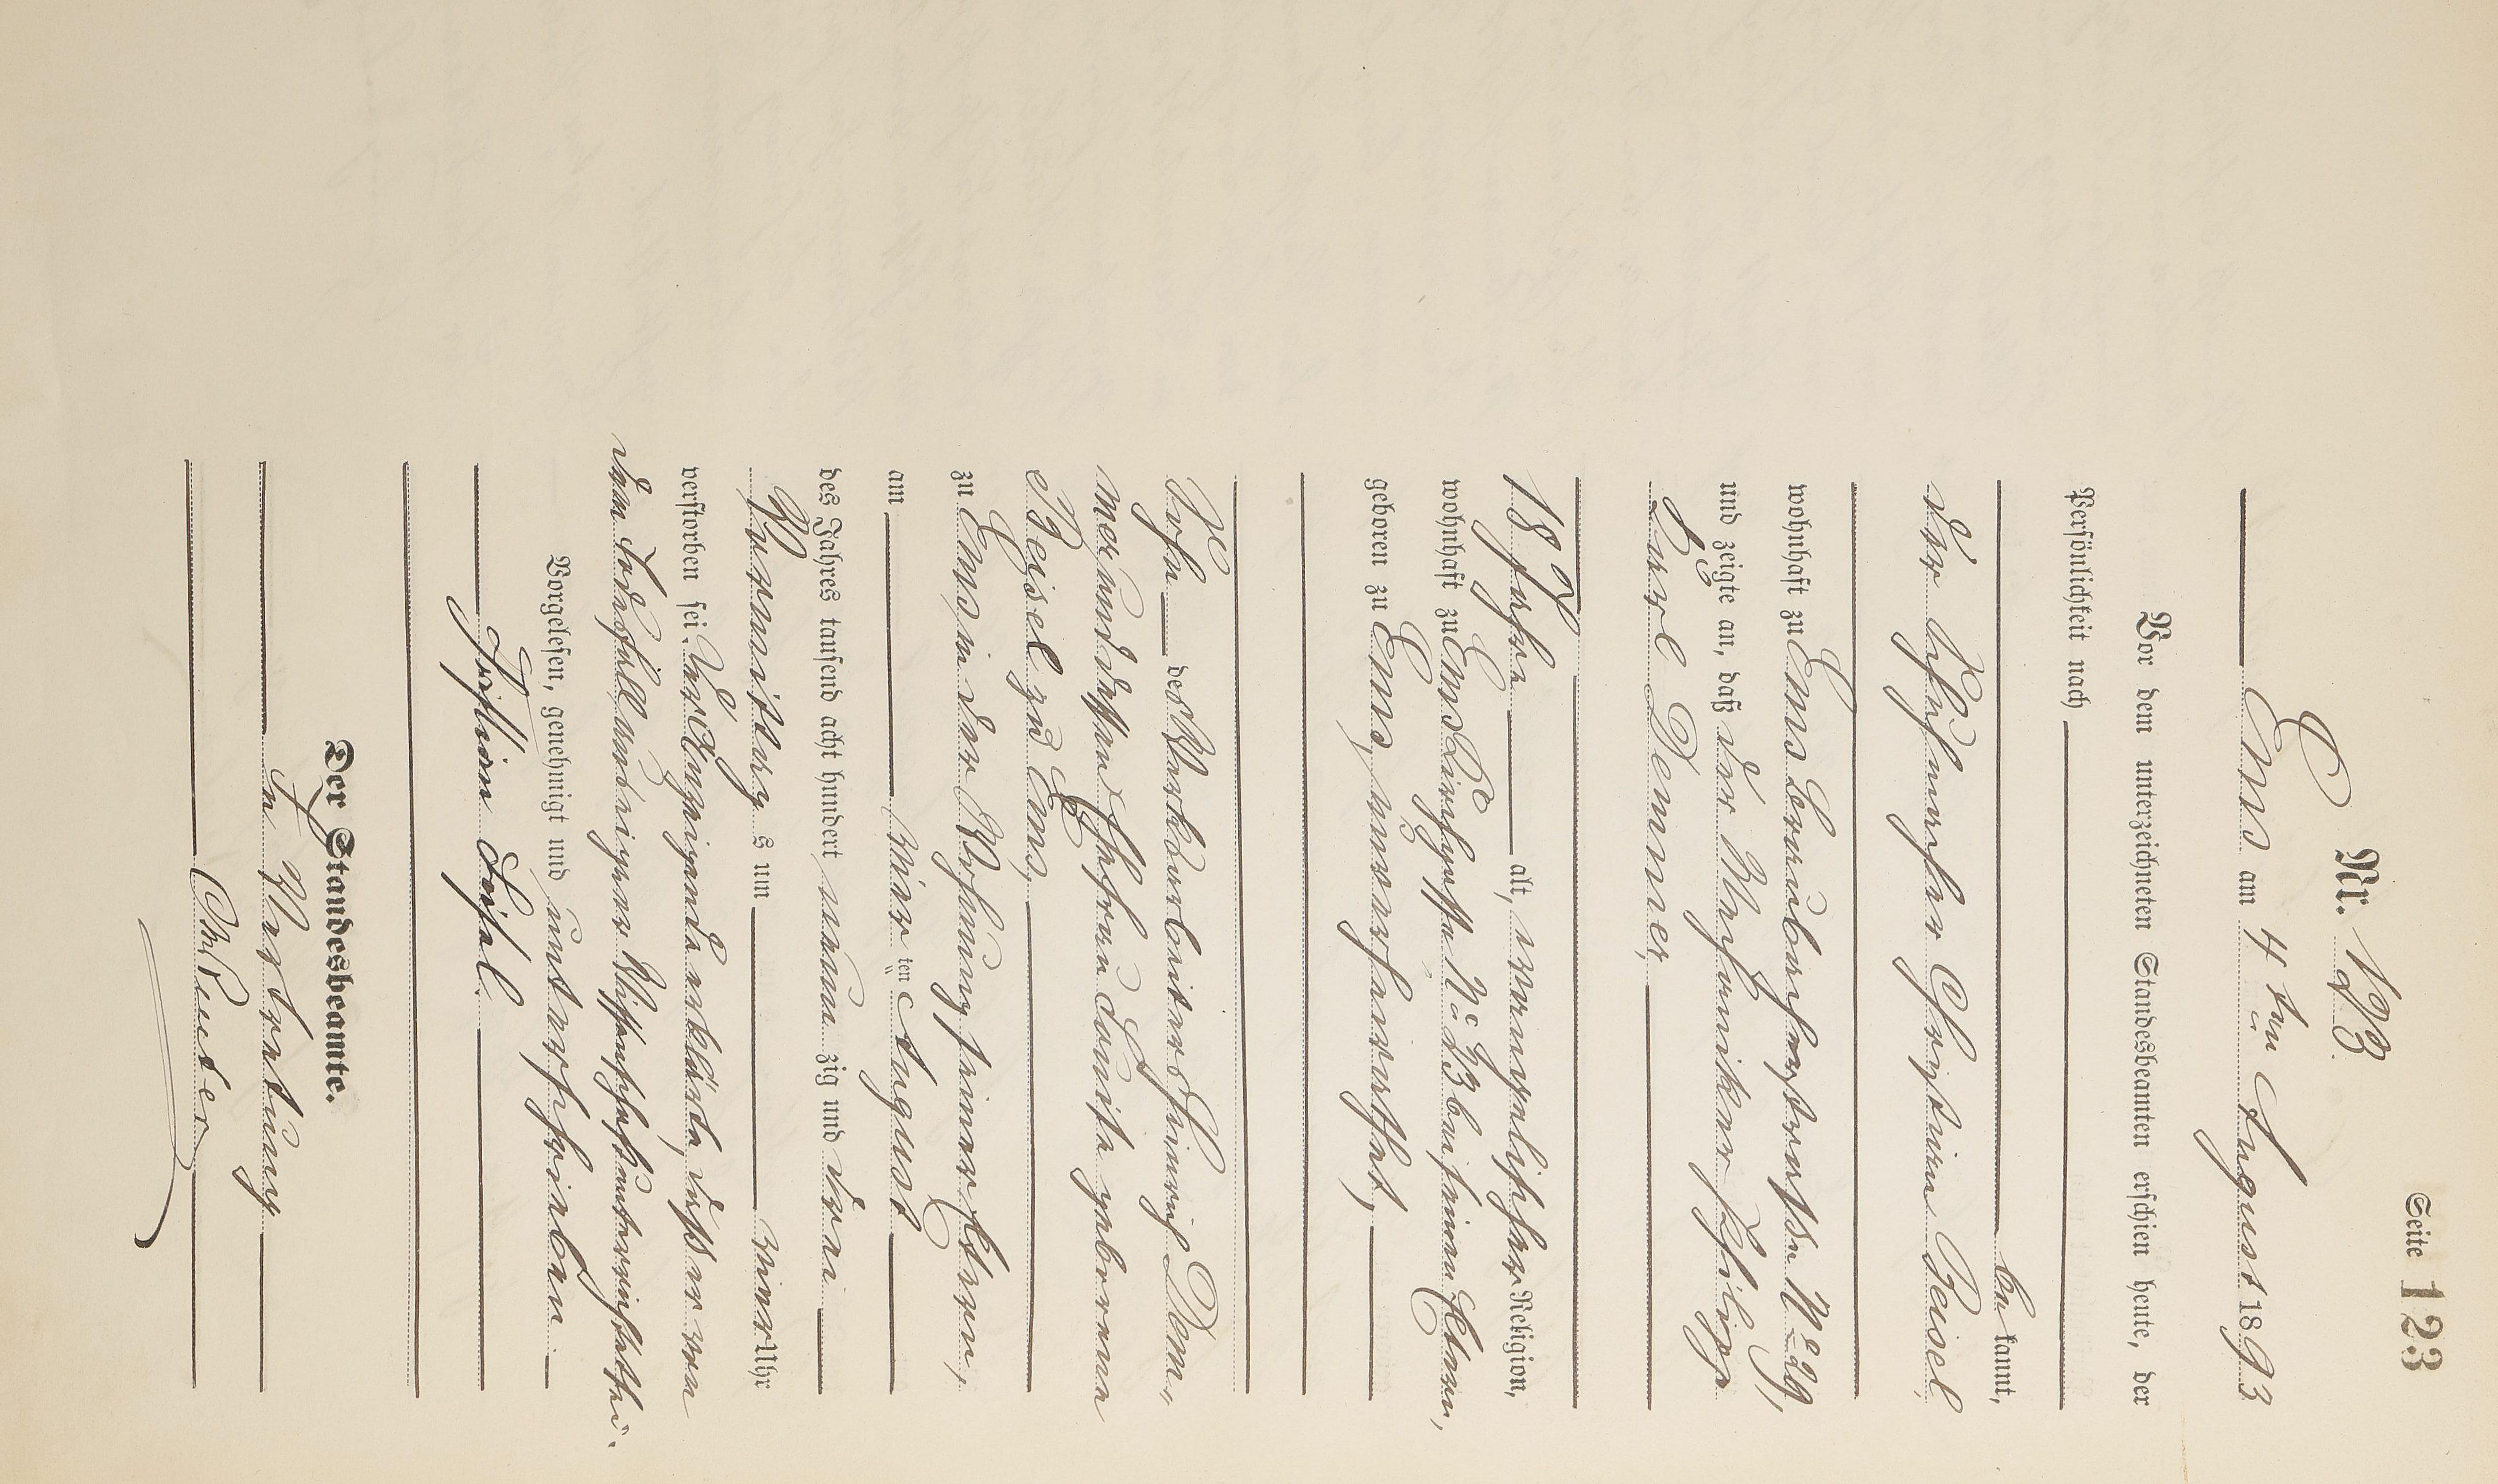 Seite 123
Nr. 123
Ems am 4 ten August 1893
Vor dem unterzeichneten Standesbeamten erschien heute, der
Persönlichkeit nach
be kannt,
der Schuhmacher Christian Beisel,
wohnhaft zu Ems Braubacherstraße No 29,
und zeigte an, daß der Mechaniker Philipp
Karl Demmer,
18 Jahre alt, evangelischer Religion,
wohnhaft zu Ems Kirchgasse No 33 bei seinen Eltern,
geboren zu Ems, unverheirathet,
Sohn des Werkarbeiters Heinrich Dem-
mer und dessen Ehefrau Louise geborene
Beisel zu Ems,
zu Ems in der Wohnung seiner Eltern,
am vier ten August
des Jahres tausend acht hundert neun zig und drei
Vormittag s um vier Uhr
verstorben sei. Der Anzeigende erklärte, daß er von
dem Todesfall aus eigener Wissenschaft unterrichtet sei.
Vorgelesen, genehmigt und unterschrieben
Christian Beisel
Der Standesbeamte.
In Vertretung